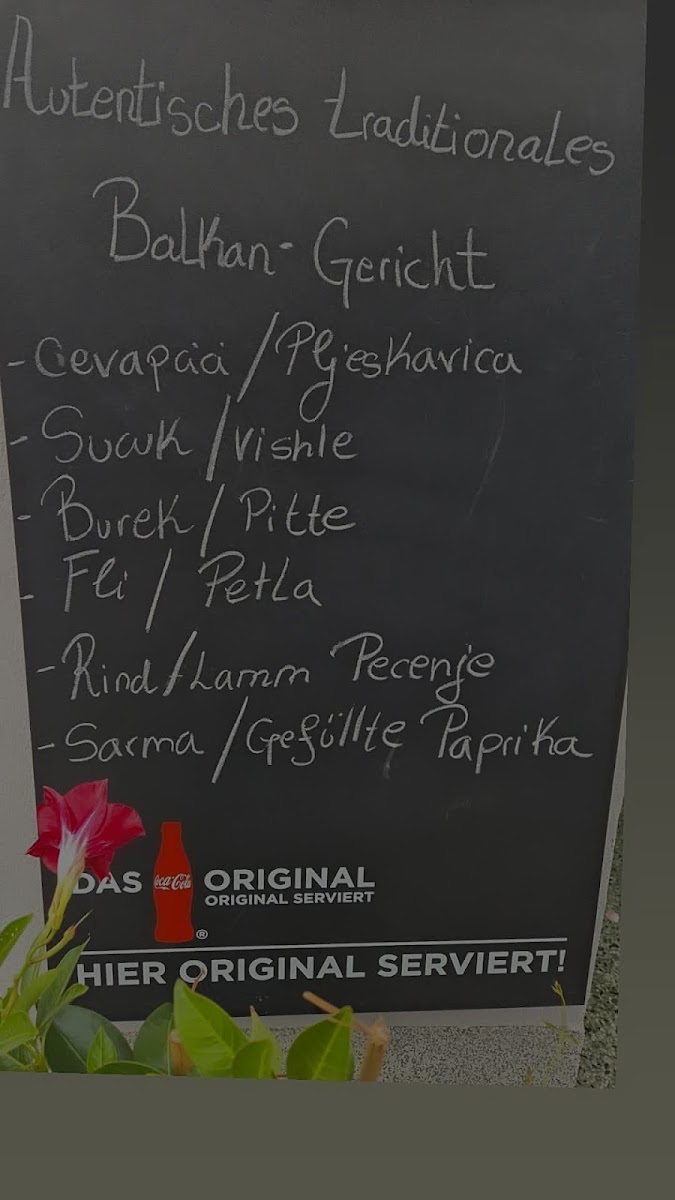 Autentisches traditionales
Balkan-Gericht
- Cevapcici/Pljeskavica
- Sucuk/Vishle
- Burek/Pitte
- Fli/Petla
- Rind/Lamm Pecenje
- Sarma/Gefüllte Paprika
DAS Coca-Cola ORIGINAL
ORIGINAL SERVIERT
®
HIER ORIGINAL SERVIERT!